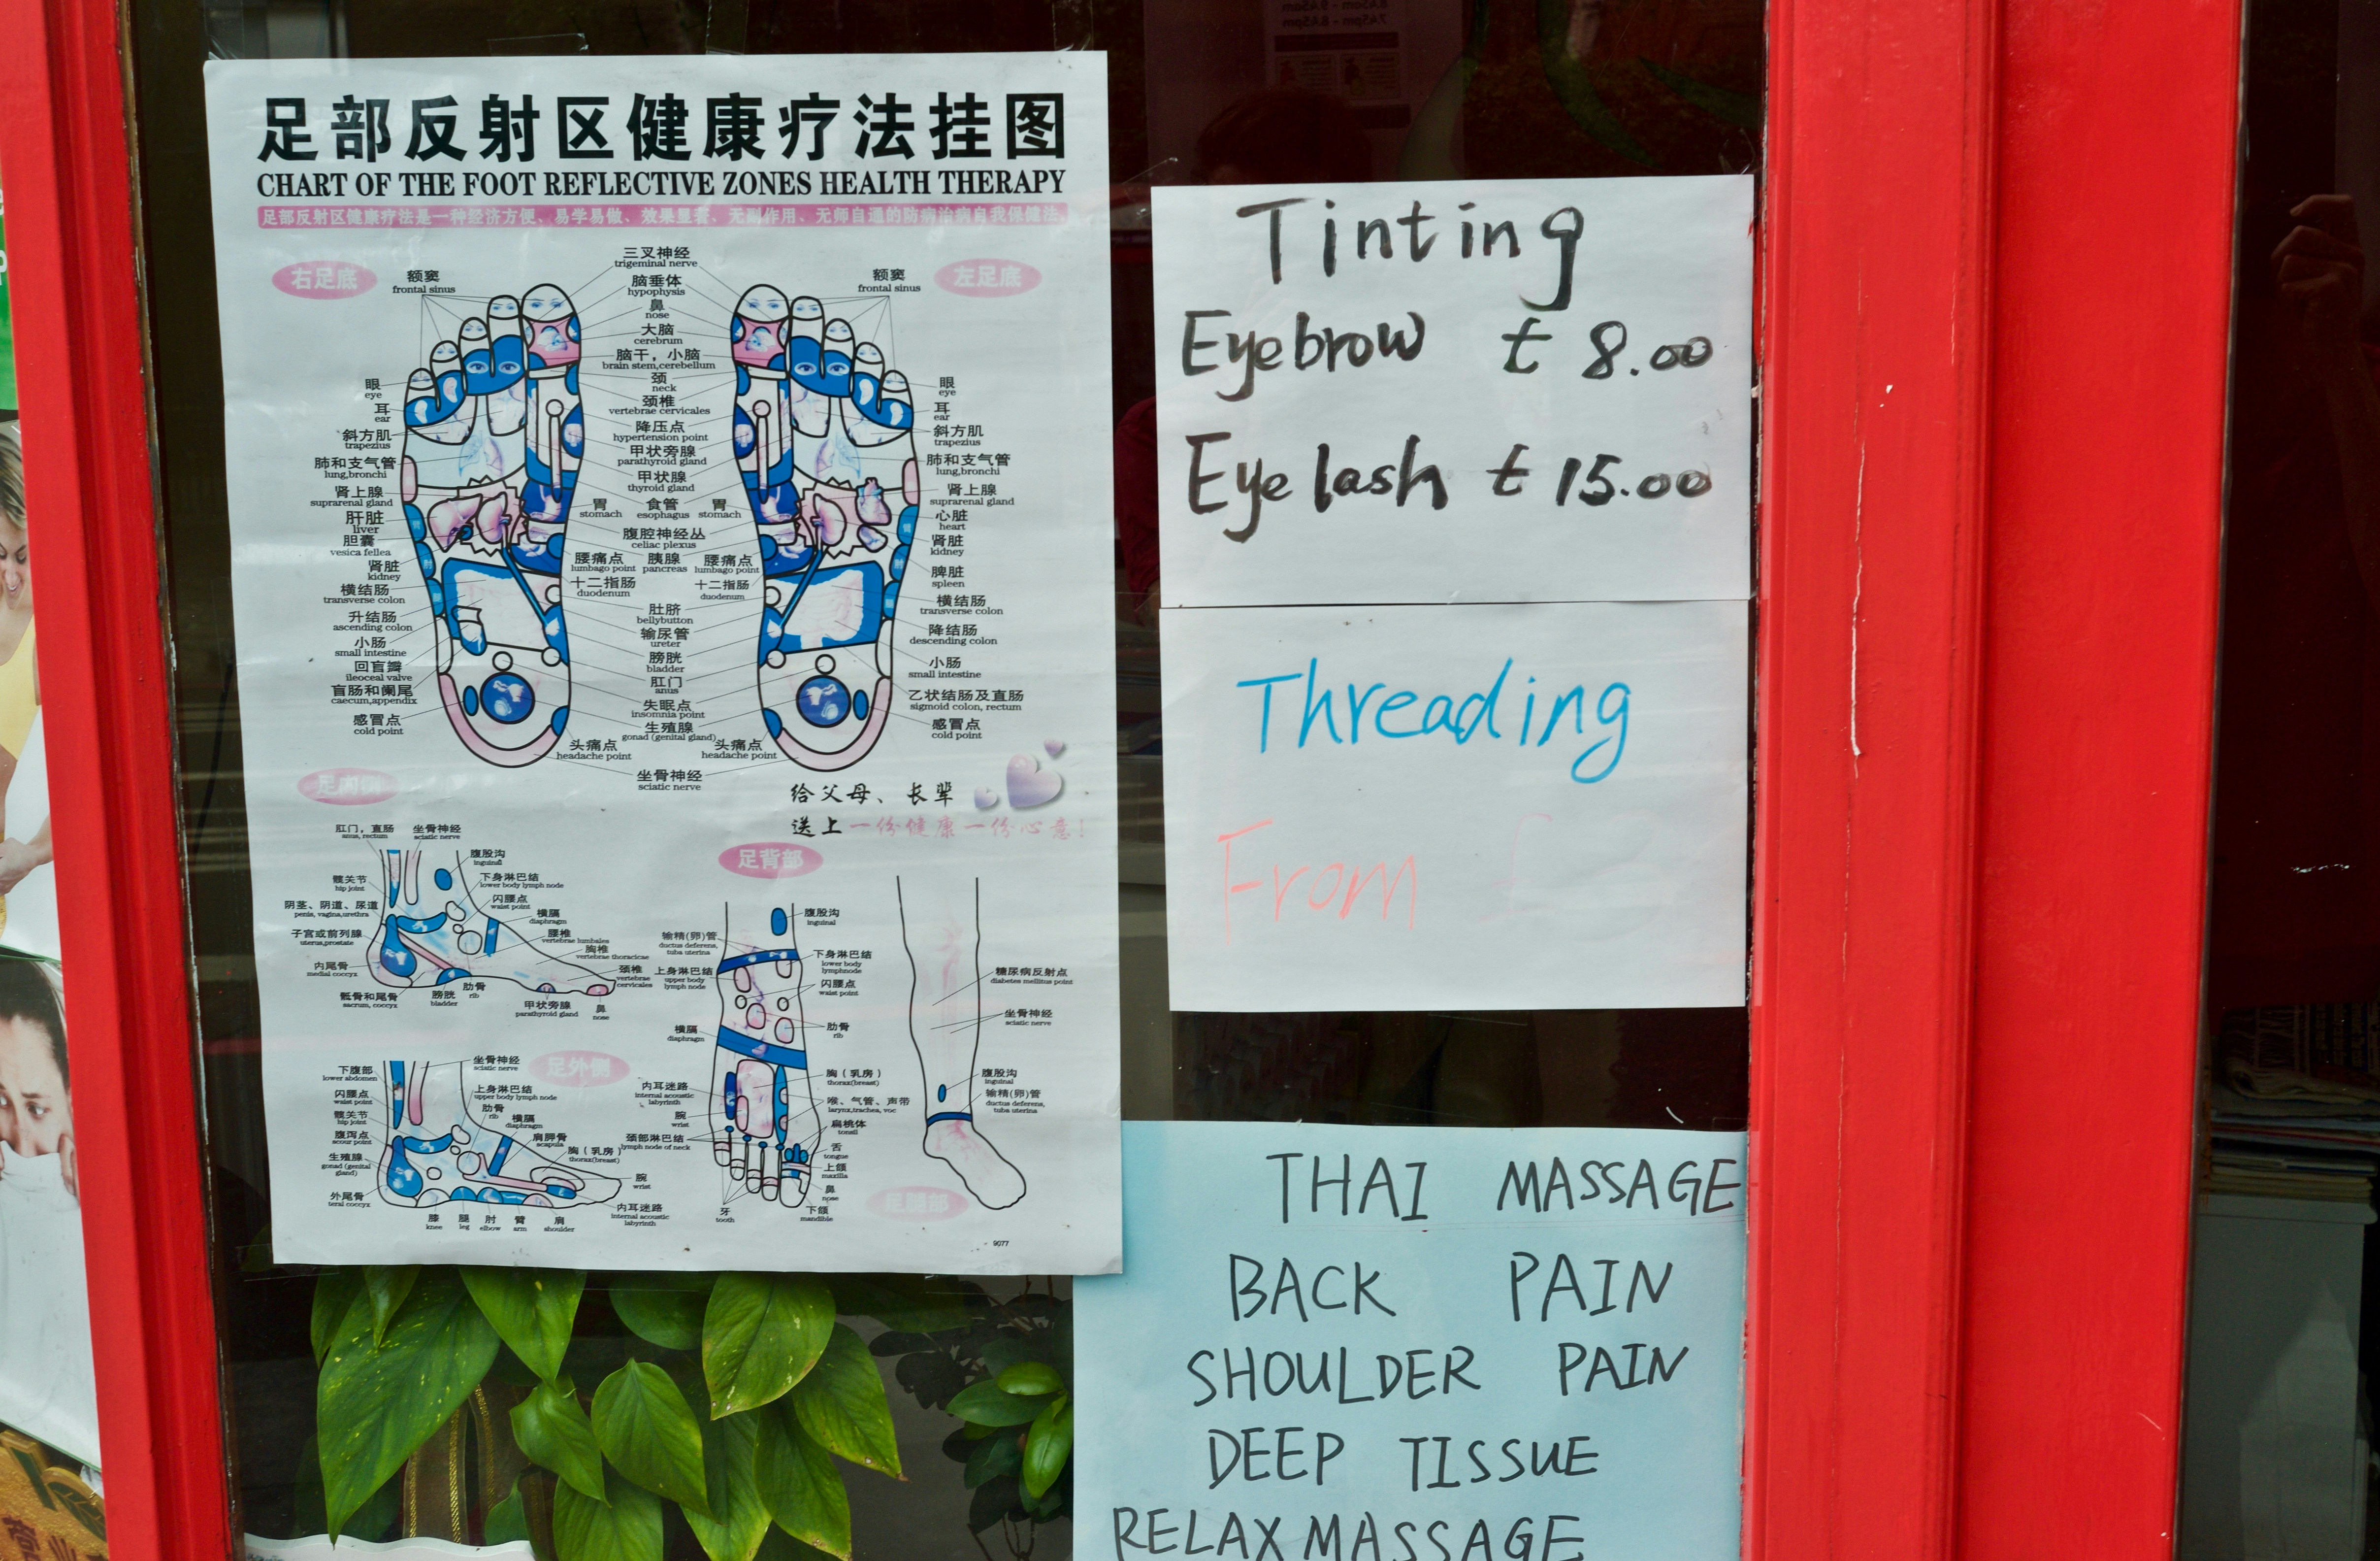 足部反射区健康疗法挂图
CHART OF THE FOOT REFLECTIVE ZONES HEALTH THERAPY
足部反射区健康疗法是一种经济方便、易学易做、效果显著、无副作用、无师自通的防病治病自我保健法。
右足底
左足底
额窦
frontal sinus
三叉神经
trigeminal nerve
额窦
frontal sinus
脑垂体
hypophysis
鼻
nose
大脑
cerebrum
脑干，小脑
brain stem,cerebellum
颈
neck
颈椎
vertebrae cervicales
降压点
hypertension point
甲状旁腺
parathyroid gland
甲状腺
thyroid gland
胃
stomach
食管
esophagus
胃
stomach
腹腔神经丛
celiac plexus
腰痛点
lumbago point
胰腺
pancreas
腰痛点
lumbago point
十二指肠
duodenum
十二指肠
duodenum
肚脐
bellybutton
输尿管
ureter
膀胱
bladder
肛门
anus
失眠点
insomnia point
生殖腺
gonad (genital gland)
头痛点
headache point
头痛点
headache point
坐骨神经
sciatic nerve
眼
eye
耳
ear
斜方肌
trapezius
肺和支气管
lung,bronchi
肾上腺
suprarenal gland
肝脏
liver
胆囊
vesica fellea
肾脏
kidney
横结肠
transverse colon
升结肠
ascending colon
小肠
small intestine
回盲瓣
ileocecal valve
盲肠和阑尾
caecum,appendix
感冒点
cold point
眼
eye
耳
ear
斜方肌
trapezius
肺和支气管
lung,bronchi
肾上腺
suprarenal gland
心脏
heart
肾脏
kidney
脾脏
spleen
横结肠
transverse colon
降结肠
descending colon
小肠
small intestine
乙状结肠及直肠
sigmoid colon, rectum
感冒点
cold point
给父母、长辈
送上一份健康一份心意！
足内侧
肛门，直肠
anus, rectum
坐骨神经
sciatic nerve
腹股沟
inguinal
髋关节
hip joint
下身淋巴结
lower body lymph node
闪腰点
waist point
阴茎、阴道、尿道
penis, vagina,urethra
横膈
diaphragm
子宫或前列腺
uterus,prostate
腰椎
vertebrae lumbales
胸椎
vertebrae thoracicae
内尾骨
medial coccyx
颈椎
vertebrae cervicales
骶骨和尾骨
sacrum, coccyx
膀胱
bladder
肋骨
rib
甲状旁腺
parathyroid gland
鼻
nose
足背部
腹股沟
inguinal
输精(卵)管
ductus deferens,
tuba uterina
下身淋巴结
lower body
lymphnode
上身淋巴结
upper body
lymph node
闪腰点
waist point
肋骨
rib
横膈
diaphragm
胸（乳房）
thorax(breast)
内耳迷路
internal acoustic
labyrinth
喉、气管、声带
larynx,trachea, voc
腕
wrist
扁桃体
tonsil
颈部淋巴结
lymph node of neck
舌
tongue
上颌
maxilla
鼻
nose
牙
tooth
下颌
mandible
糖尿病反射点
diabetes mellitus point
坐骨神经
sciatic nerve
腹股沟
inguinal
输精(卵)管
ductus deferens,
tuba uterina
足腿部
足外侧
坐骨神经
sciatic nerve
下腹部
lower abdomen
闪腰点
waist point
上身淋巴结
upper body lymph node
髋关节
hip joint
肋骨
rib
横膈
diaphragm
腹泻点
scour point
肩胛骨
scapula
生殖腺
gonad (genital
gland)
胸（乳房）
thorax(breast)
腕
wrist
外尾骨
teral coccyx
内耳迷路
internal acoustic
labyrinth
膝
knee
腿
leg
肘
elbow
臂
arm
肩
shoulder
9077
Tinting
Eyebrow £ 8.00
Eyelash £ 15.00
Threading
From
THAI MASSAGE
BACK PAIN
SHOULDER PAIN
DEEP TISSUE
RELAX MASSAGE